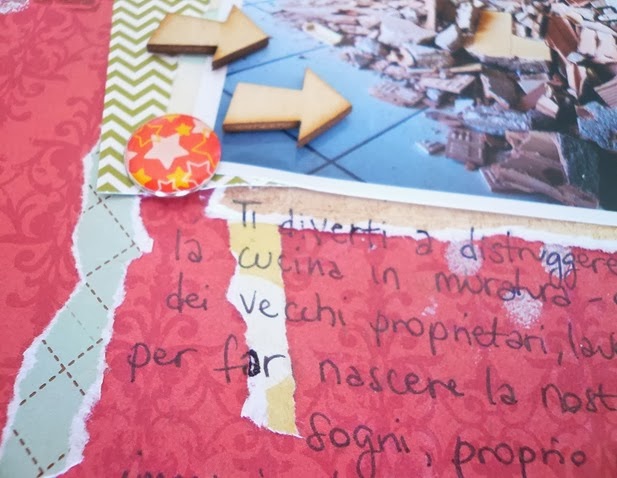 Ti diverti a distruggere
la cucina in muratura -
dei vecchi proprietari,
per far nascere la
sogni, proprio